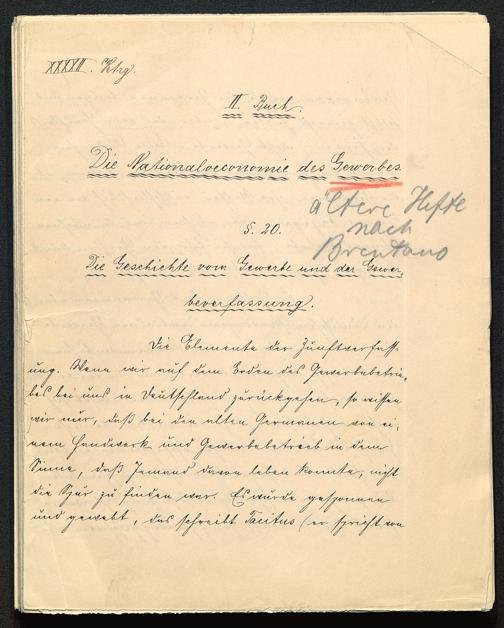 XXXXII. Ktzg.
II. Buch.
Die Nationaloeconomie des Gewerbes.
ältere Hefte
nach
Brentano
§. 20.
Die Geschichte vom Gewerbe und der Gewer-
beverfassung.
Die Elemente der Zunftverfass-
ung. Wenn wir auf dem Boden des Gewerbebetrie-
bes bei uns in Deutschland zurückgehen, so wissen
wir nur, daß bei den alten Germanen von ei-
nem Handwerk und Gewerbebetrieb in dem
Sinne, daß Jemand davon leben konnte, nicht
die Spur zu finden war. Es wurde gesponnen
und gewebt, das schreibt Tacitus (er spricht von